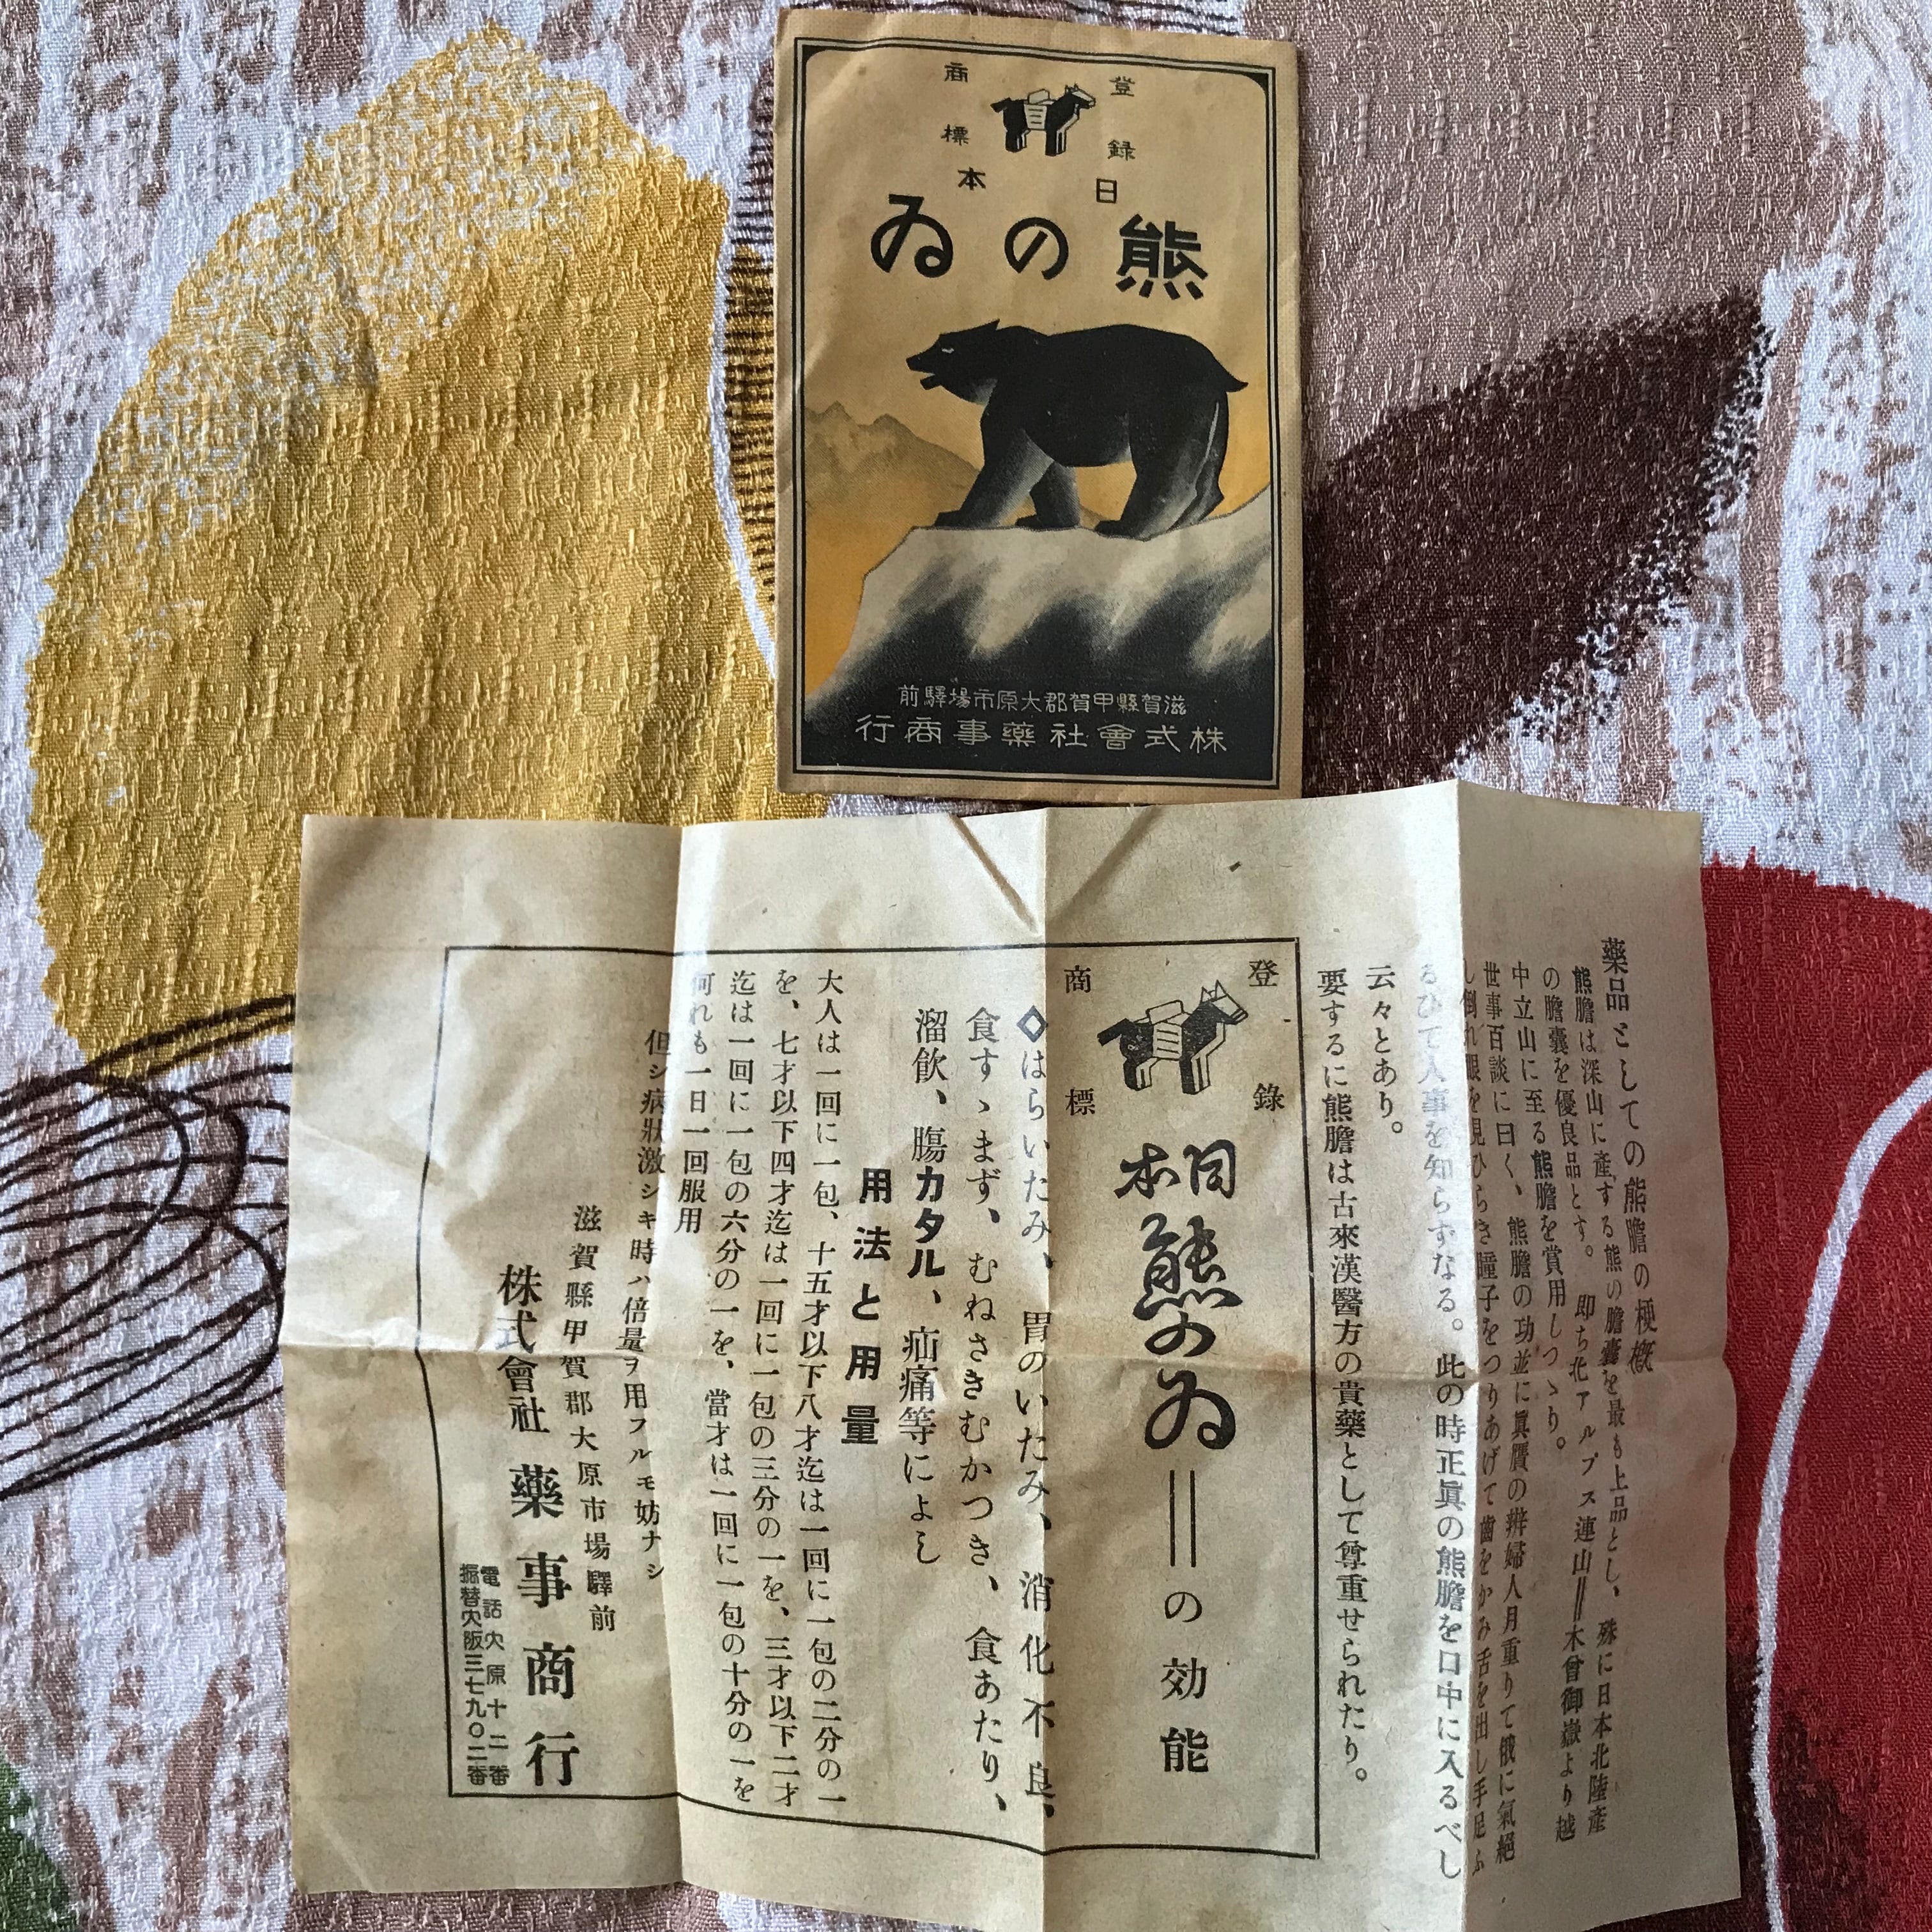 登録
商標
日本
熊のゐ
滋賀縣甲賀郡大原市場驛前
株式會社藥事商行
藥品としての熊膽の梗概
熊膽は深山に產する熊の膽嚢を最も上品とし、殊に日本北陸產
の膽嚢を優良品とす。即ち北アルプス連山‖木曾御嶽より越
中立山に至る熊膽を賞用しつゝり。
世事百談に曰く、熊膽の功並に眞贋の辨婦人月重りて俄に氣絕
し倒れ眼を見ひらき瞳子をつりあげて齒をかみ舌を出し手足ふ
るひて人事を知らずなる。此の時正眞の熊膽を口中に入るべし
云々とあり。
要するに熊膽は古來漢醫方の貴藥として尊重せられたり。
登錄
商標
日本
熊のゐ‖の効能
◇はらいたみ、胃のいたみ、消化不良、
食すゝまず、むねさきむかつき、食あたり、
溜飮、腸カタル、疝痛等によし
用法と用量
大人は一回に一包、十五才以下八才迄は一回に一包の二分の一
を、七才以下四才迄は一回に一包の三分の一を、三才以下二才
迄は一回に一包の六分の一を、當才は一回に一包の十分の一を
何れも一日一回服用
但シ病狀激シキ時ハ倍量ヲ用フルモ妨ナシ
滋賀縣甲賀郡大原市場驛前
株式會社 藥事商行
電話大原十二番
振替大阪三七九〇二番